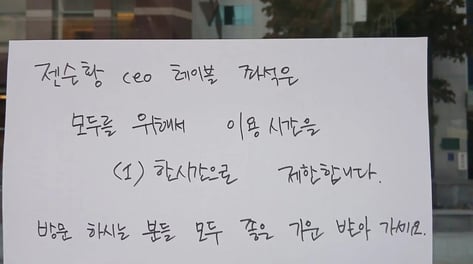 젠슨황 ceo 테이블 좌석은
모두를 위해서 이용시간을
(1) 한시간으로 제한합니다.
방문 하시는 분들 모두 좋은 기운 받아 가세요.